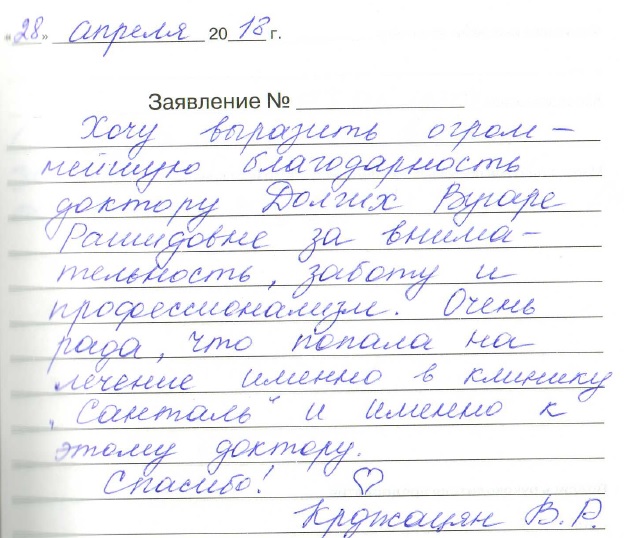 «28» апреля 2018 г.
Заявление №
Хочу выразить огром-
нейшую благодарность
доктору Долгих Вугаре
Рашидовне за внима-
тельность, заботу и
профессионализм. Очень
рада, что попала на
лечение именно в клинику
„Санталь" и именно к
этому доктору.
Спасибо! ♡
Крджацян В. Р.